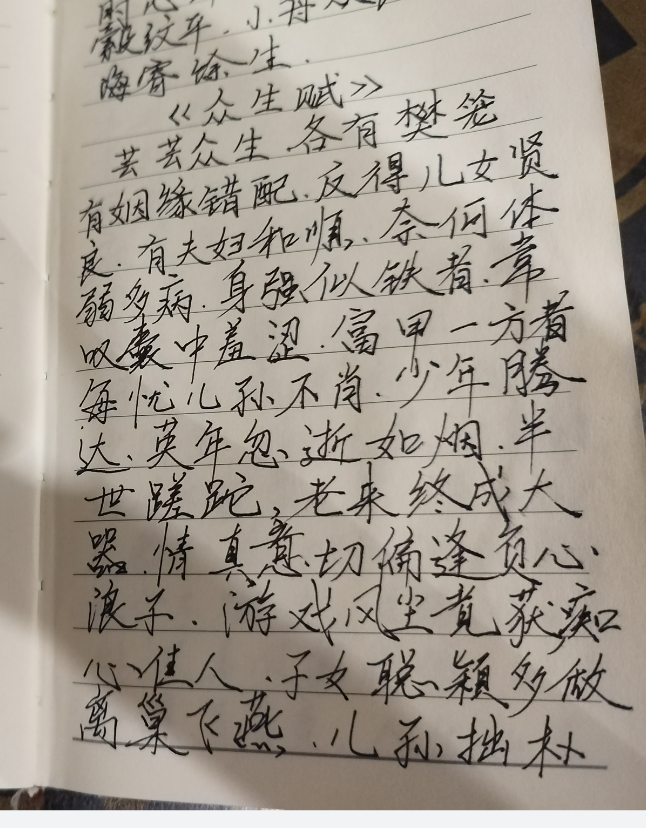 毂纹平.小舟从
海寄余生.
《众生赋》
芸芸众生.各有樊笼
有姻缘错配.反得儿女贤
良.有夫妇和顺.奈何体
弱多病.身强似铁者.常
叹囊中羞涩.富甲一方者
每忧儿孙不肖.少年腾
达.英年忽逝如烟.半
世蹉跎,老来终成大
器.情真意切偏逢负心
浪子.游戏风尘竟获痴
心佳人.子女聪颖多做
离巢飞燕.儿孙拙朴